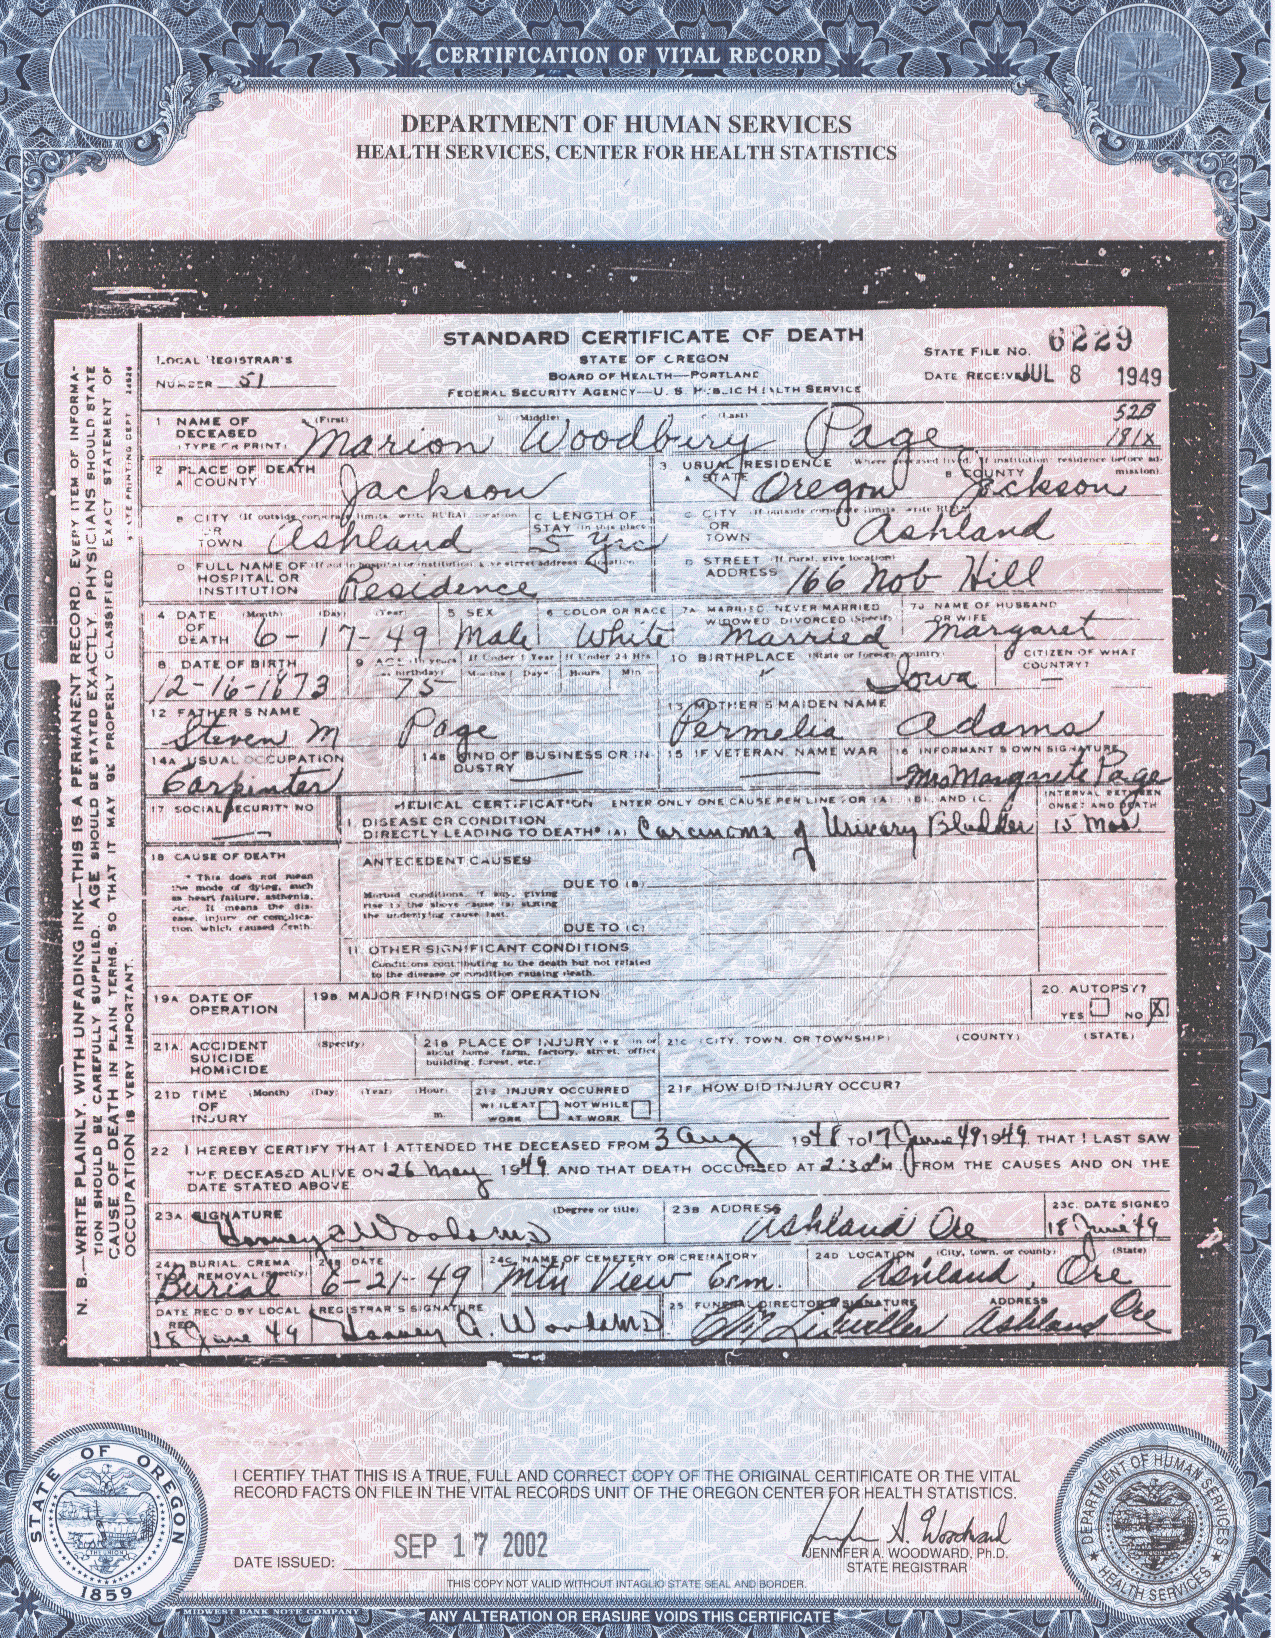 CERTIFICATION OF VITAL RECORD
DEPARTMENT OF HUMAN SERVICES
HEALTH SERVICES, CENTER FOR HEALTH STATISTICS
STANDARD CERTIFICATE OF DEATH
STATE OF OREGON
BOARD OF HEALTH—PORTLAND
FEDERAL SECURITY AGENCY—U. S. PUBLIC HEALTH SERVICE
LOCAL REGISTRAR'S
NUMBER 51
STATE FILE NO. 6229
DATE RECEIVED JUL 8 1949
52B
191X
1 NAME OF DECEASED (TYPE OR PRINT) (First) Marion (Middle) Woodbury (Last) Page
2 PLACE OF DEATH
A COUNTY Jackson
3. USUAL RESIDENCE (Where deceased lived. If institution residence before admission).
A STATE Oregon B COUNTY Jackson
B CITY (If outside corporate limits, write RURAL location) OR TOWN Ashland
C LENGTH OF STAY (in this place) 5 yrs
C. CITY (If outside corporate limits, write RURAL) OR TOWN Ashland
D FULL NAME OF (If not in hospital or institution give street address or location) HOSPITAL OR INSTITUTION Residence
D STREET (If rural, give location) ADDRESS 166 Nob Hill
4 DATE OF DEATH (Month) (Day) (Year) 6-17-49
5 SEX Male
6 COLOR OR RACE White
7A MARRIED NEVER MARRIED WIDOWED DIVORCED (Specify) Married
7B NAME OF HUSBAND OR WIFE Margaret
8. DATE OF BIRTH 12-16-1873
9 AGE (In years last birthday) 75 If Under 1 Year Months Days If Under 24 Hrs Hours Min
10 BIRTHPLACE (State or foreign country) Iowa
CITIZEN OF WHAT COUNTRY? —
12 FATHER'S NAME Steven M Page
13 MOTHER'S MAIDEN NAME Permelia Adams
14A USUAL OCCUPATION Carpinter
14B KIND OF BUSINESS OR INDUSTRY —
15 IF VETERAN, NAME WAR —
16 INFORMANT'S OWN SIGNATURE Mrs Margrete Page
17 SOCIAL SECURITY NO —
MEDICAL CERTIFICATION ENTER ONLY ONE CAUSE PER LINE FOR (A), (B), AND (C)
INTERVAL BETWEEN ONSET AND DEATH
I. DISEASE OR CONDITION
DIRECTLY LEADING TO DEATH* (A) Carcinoma of Urinary Bladder 15 Mos.
18 CAUSE OF DEATH
* This does not mean the mode of dying, such as heart failure, asthenia, etc. It means the disease, injury or complication which caused death.
ANTECEDENT CAUSES
DUE TO (B)
Morbid conditions, if any, giving rise to the above cause (a) stating the underlying cause last.
DUE TO (C)
11. OTHER SIGNIFICANT CONDITIONS
Conditions contributing to the death but not related to the disease or condition causing death.
19A DATE OF OPERATION
19B MAJOR FINDINGS OF OPERATION
20. AUTOPSY?
YES NO X
21A. ACCIDENT SUICIDE HOMICIDE (Specify)
21B PLACE OF INJURY (e.g. in or about home, farm, factory, street, office building, forest, etc.)
21C (CITY, TOWN, OR TOWNSHIP) (COUNTY) (STATE)
21D TIME OF INJURY (Month) (Day) (Year) (Hour) m.
21E INJURY OCCURRED
WHILE AT WORK NOT WHILE AT WORK
21F HOW DID INJURY OCCUR?
22 I HEREBY CERTIFY THAT I ATTENDED THE DECEASED FROM 3 Aug 1948 TO 17 June 49 1949 THAT I LAST SAW
THE DECEASED ALIVE ON 26 May 1949 AND THAT DEATH OCCURRED AT 2:30 M. FROM THE CAUSES AND ON THE
DATE STATED ABOVE
23A SIGNATURE (Degree or title) Woods MD
23B ADDRESS Ashland Ore
23C. DATE SIGNED 18 June 49
24A BURIAL, CREMATION, REMOVAL (Specify) Burial
24B DATE 6-21-49
24C NAME OF CEMETERY OR CREMATORY Mtn View Cem.
24D LOCATION (City, town, or county) (State) Ashland, Ore
DATE REC'D BY LOCAL REG. 18 June 49
REGISTRAR'S SIGNATURE A. Woods MD
25 FUNERAL DIRECTOR'S SIGNATURE Litwiller ADDRESS Ashland Ore
N. B.—WRITE PLAINLY, WITH UNFADING INK—THIS IS A PERMANENT RECORD. EVERY ITEM OF INFORMA-
TION SHOULD BE CAREFULLY SUPPLIED. AGE SHOULD BE STATED EXACTLY. PHYSICIANS SHOULD STATE
CAUSE OF DEATH IN PLAIN TERMS, SO THAT IT MAY BE PROPERLY CLASSIFIED. EXACT STATEMENT OF
OCCUPATION IS VERY IMPORTANT.
STATE PRINTING DEPT
I CERTIFY THAT THIS IS A TRUE, FULL AND CORRECT COPY OF THE ORIGINAL CERTIFICATE OR THE VITAL
RECORD FACTS ON FILE IN THE VITAL RECORDS UNIT OF THE OREGON CENTER FOR HEALTH STATISTICS.
DATE ISSUED: SEP 17 2002
Jennifer A. Woodward
JENNIFER A. WOODWARD, Ph.D.
STATE REGISTRAR
THIS COPY NOT VALID WITHOUT INTAGLIO STATE SEAL AND BORDER.
STATE OF OREGON
THE UNION
1859
DEPARTMENT OF HUMAN SERVICES
HEALTH SERVICES
MIDWEST BANK NOTE COMPANY
ANY ALTERATION OR ERASURE VOIDS THIS CERTIFICATE